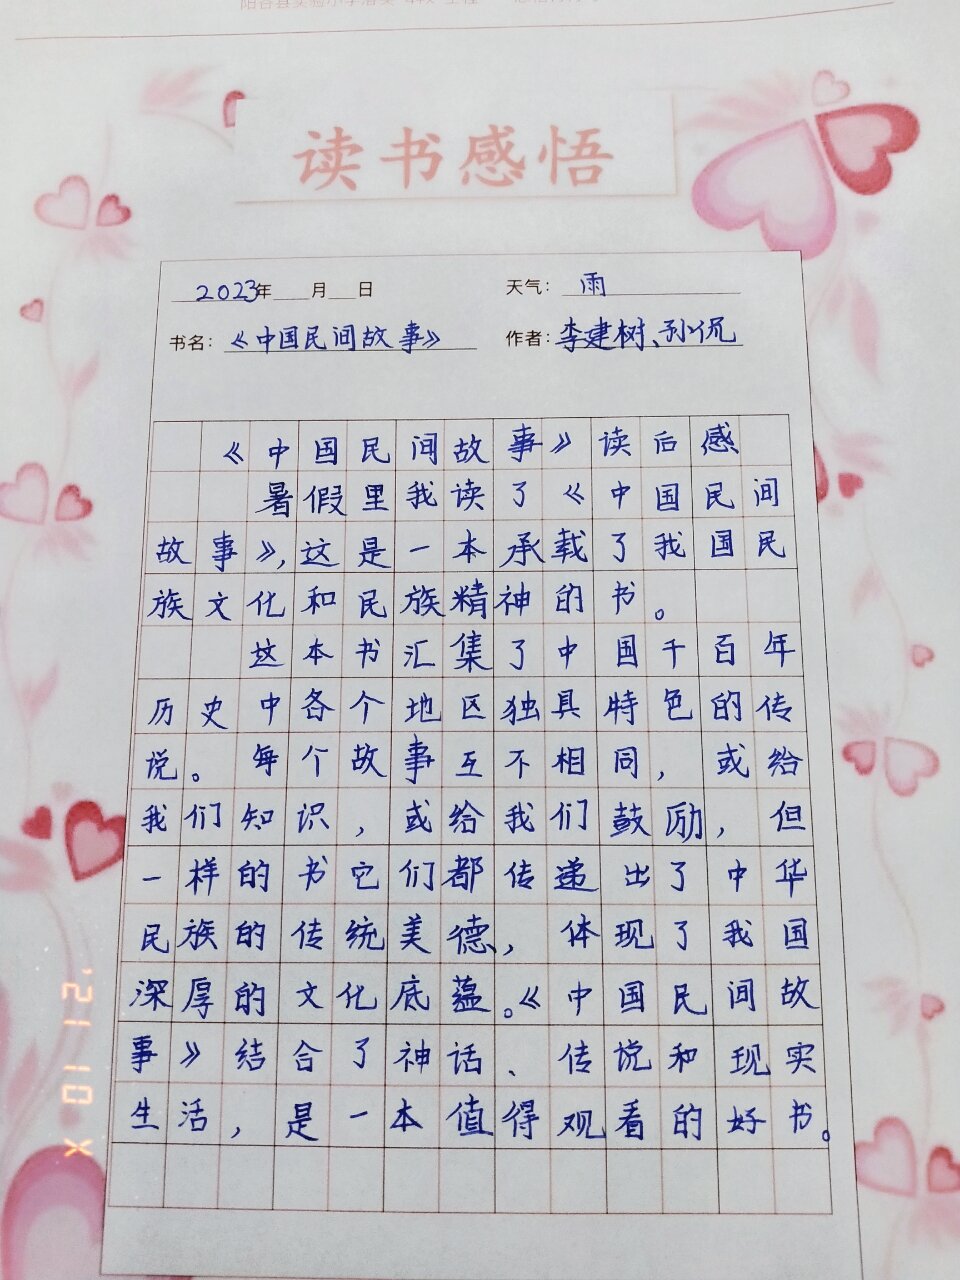 读书感悟
2023年 月 日 天气：雨
书名：《中国民间故事》 作者：李建树、孙侃
《中国民间故事》读后感
暑假里我读了《中国民间
故事》，这是一本承载了我国民
族文化和民族精神的书。
这本书汇集了中国千百年
历史中各个地区独具特色的传
说。每个故事互不相同，或给
我们知识，或给我们鼓励，但
一样的书它们都传递出了中华
民族的传统美德，体现了我国
深厚的文化底蕴。《中国民间故
事》结合了神话、传说和现实
生活，是一本值得观看的好书。